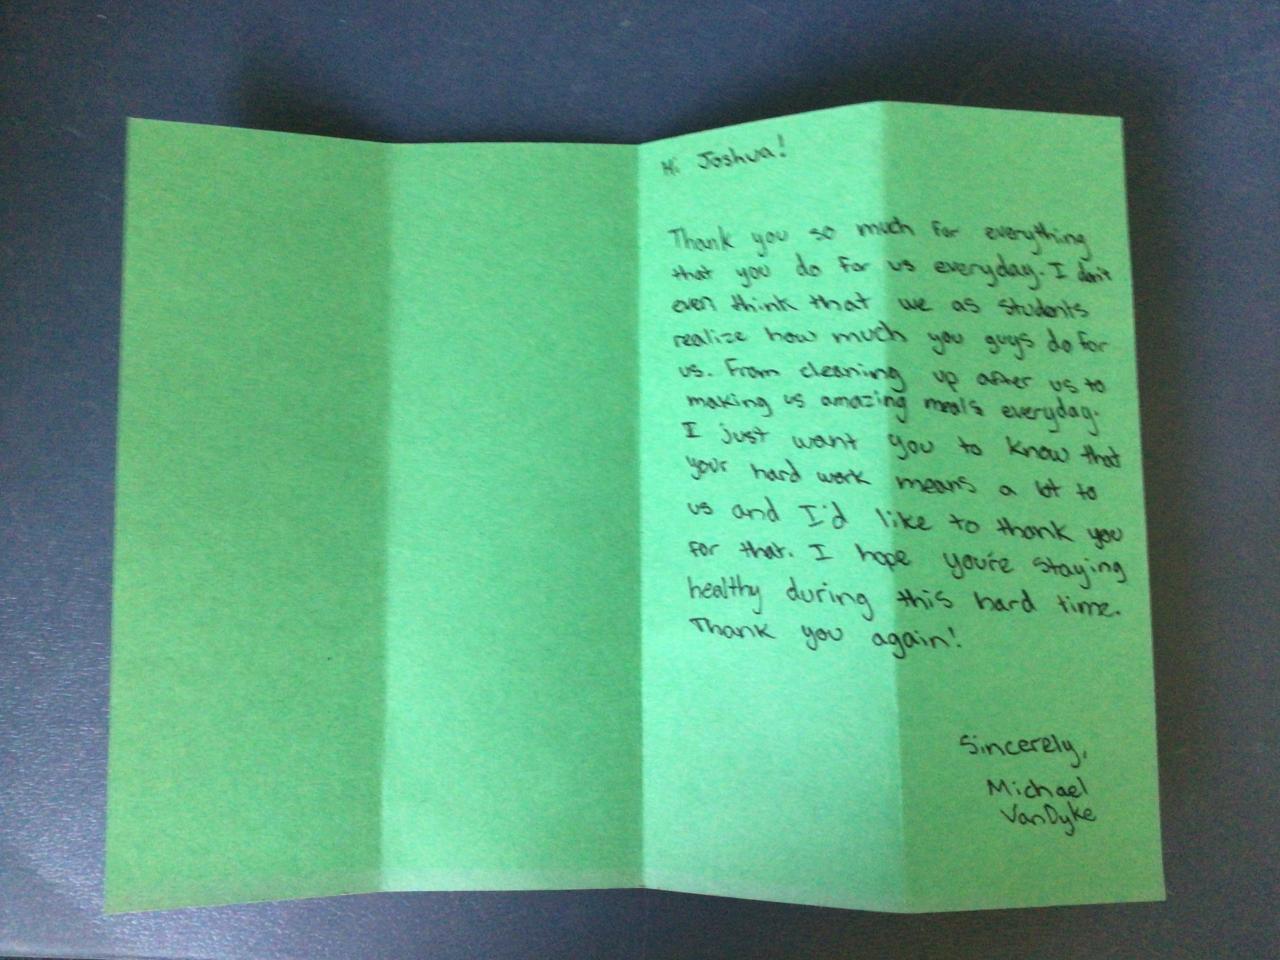 Hi Joshua!
Thank you so much for everything
that you do for us everyday. I don't
even think that we as students
realize how much you guys do for
us. From cleaning up after us to
making us amazing meals everyday.
I just want you to know that
your hard work means a lot to
us and I'd like to thank you
for that. I hope you're staying
healthy during this hard time.
Thank you again!
Sincerely,
Michael
VanDyke